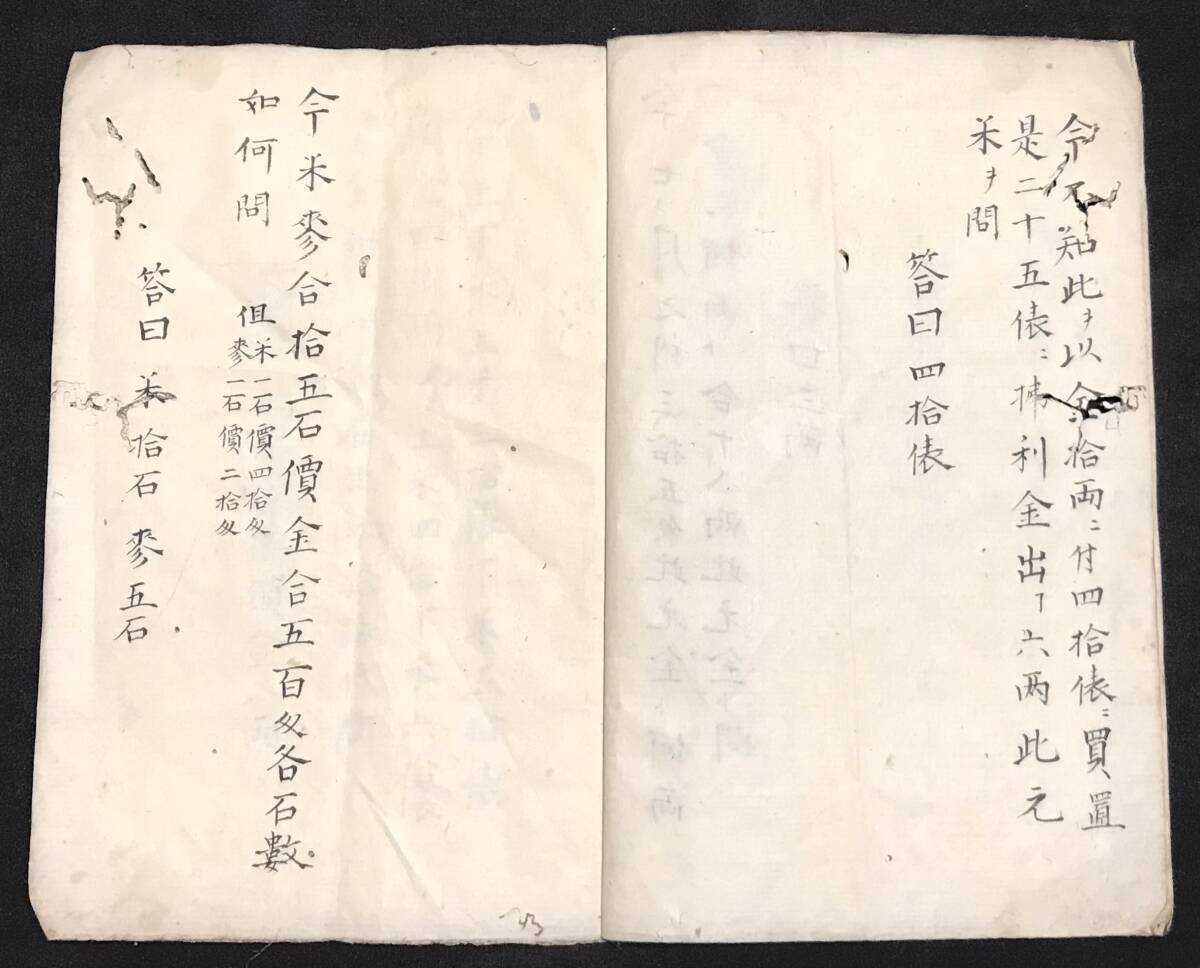 今不知此ヲ以金拾両ニ付四拾俵ニ買置
是二十五俵ニ拂利金出ヿ六両此元
米ヲ問
答曰四拾俵
今米麥合拾五石價金合五百匁各石數
如何問
但米一石價四拾匁
麥一石價二拾匁
答曰米拾石麥五石